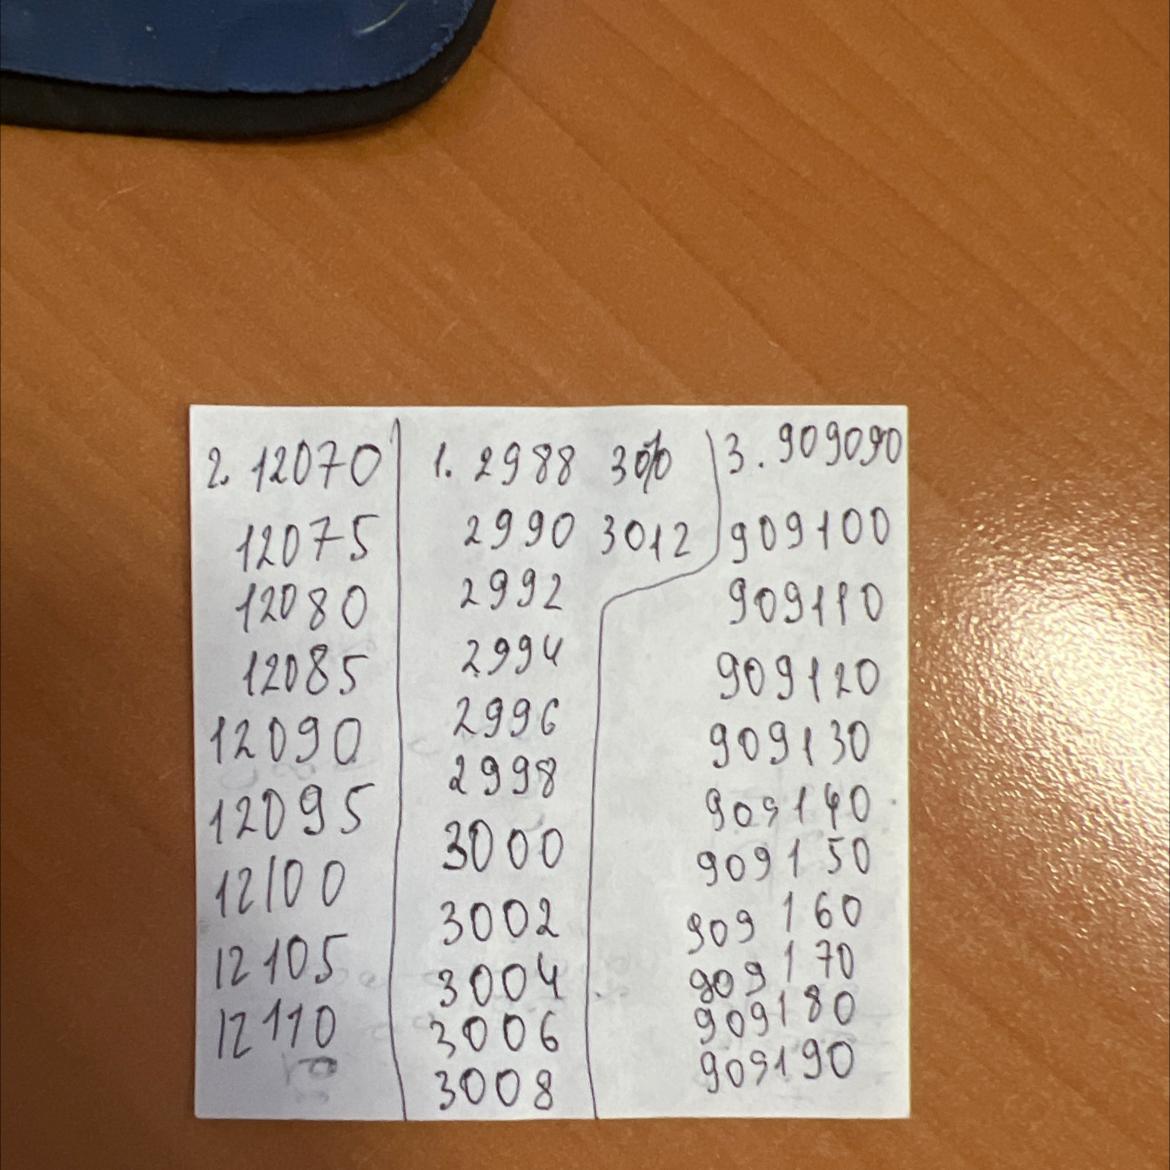 2. 12070
12075
12080
12085
12090
12095
12100
12105
12110
1. 2988
2990
2992
2994
2996
2998
3000
3002
3004
3006
3008
3010
3012
3. 909090
909100
909110
909120
909130
909140
909150
909160
909170
909180
909190